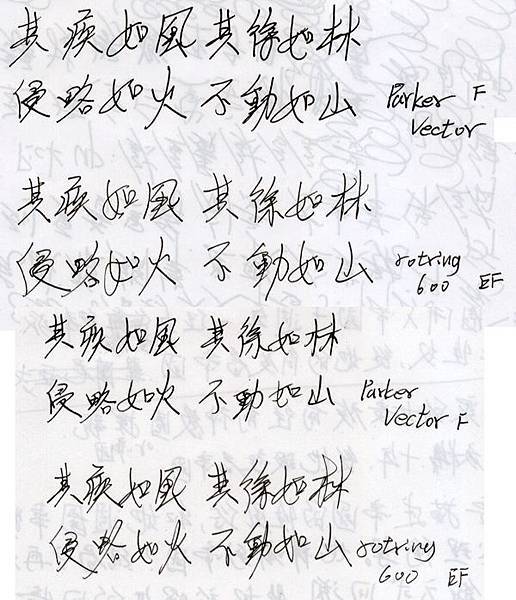 其疾如風 其徐如林
侵略如火 不動如山 Parker F
Vector
其疾如風 其徐如林
侵略如火 不動如山 rotring
600 EF
其疾如風 其徐如林
侵略如火 不動如山 Parker
Vector F
其疾如風 其徐如林
侵略如火 不動如山 rotring
600 EF